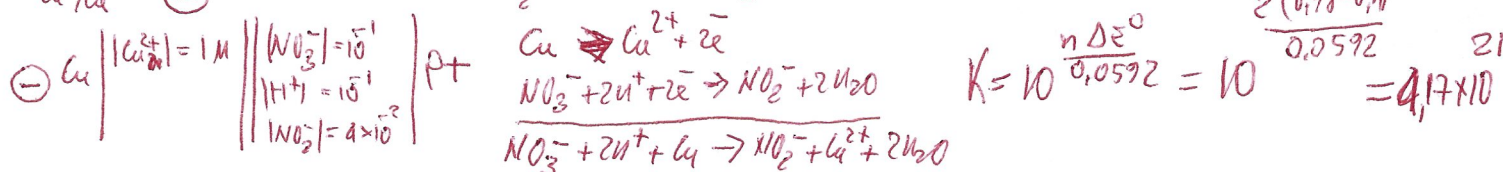 ⊖ Cu | |Cu²⁺| = 1 M || |NO₃⁻| = 10⁻¹ |H⁺| = 10⁻¹ |NO₂⁻| = 4×10⁻² | Pt
Cu → Cu²⁺ + 2e⁻
NO₃⁻ + 2H⁺ + 2e⁻ → NO₂⁻ + 2H₂O
NO₃⁻ + 2H⁺ + Cu → NO₂⁻ + Cu²⁺ + 2H₂O
K = 10^(nΔE⁰/0,0592) = 10^(/0,0592) = 4,17×10²¹